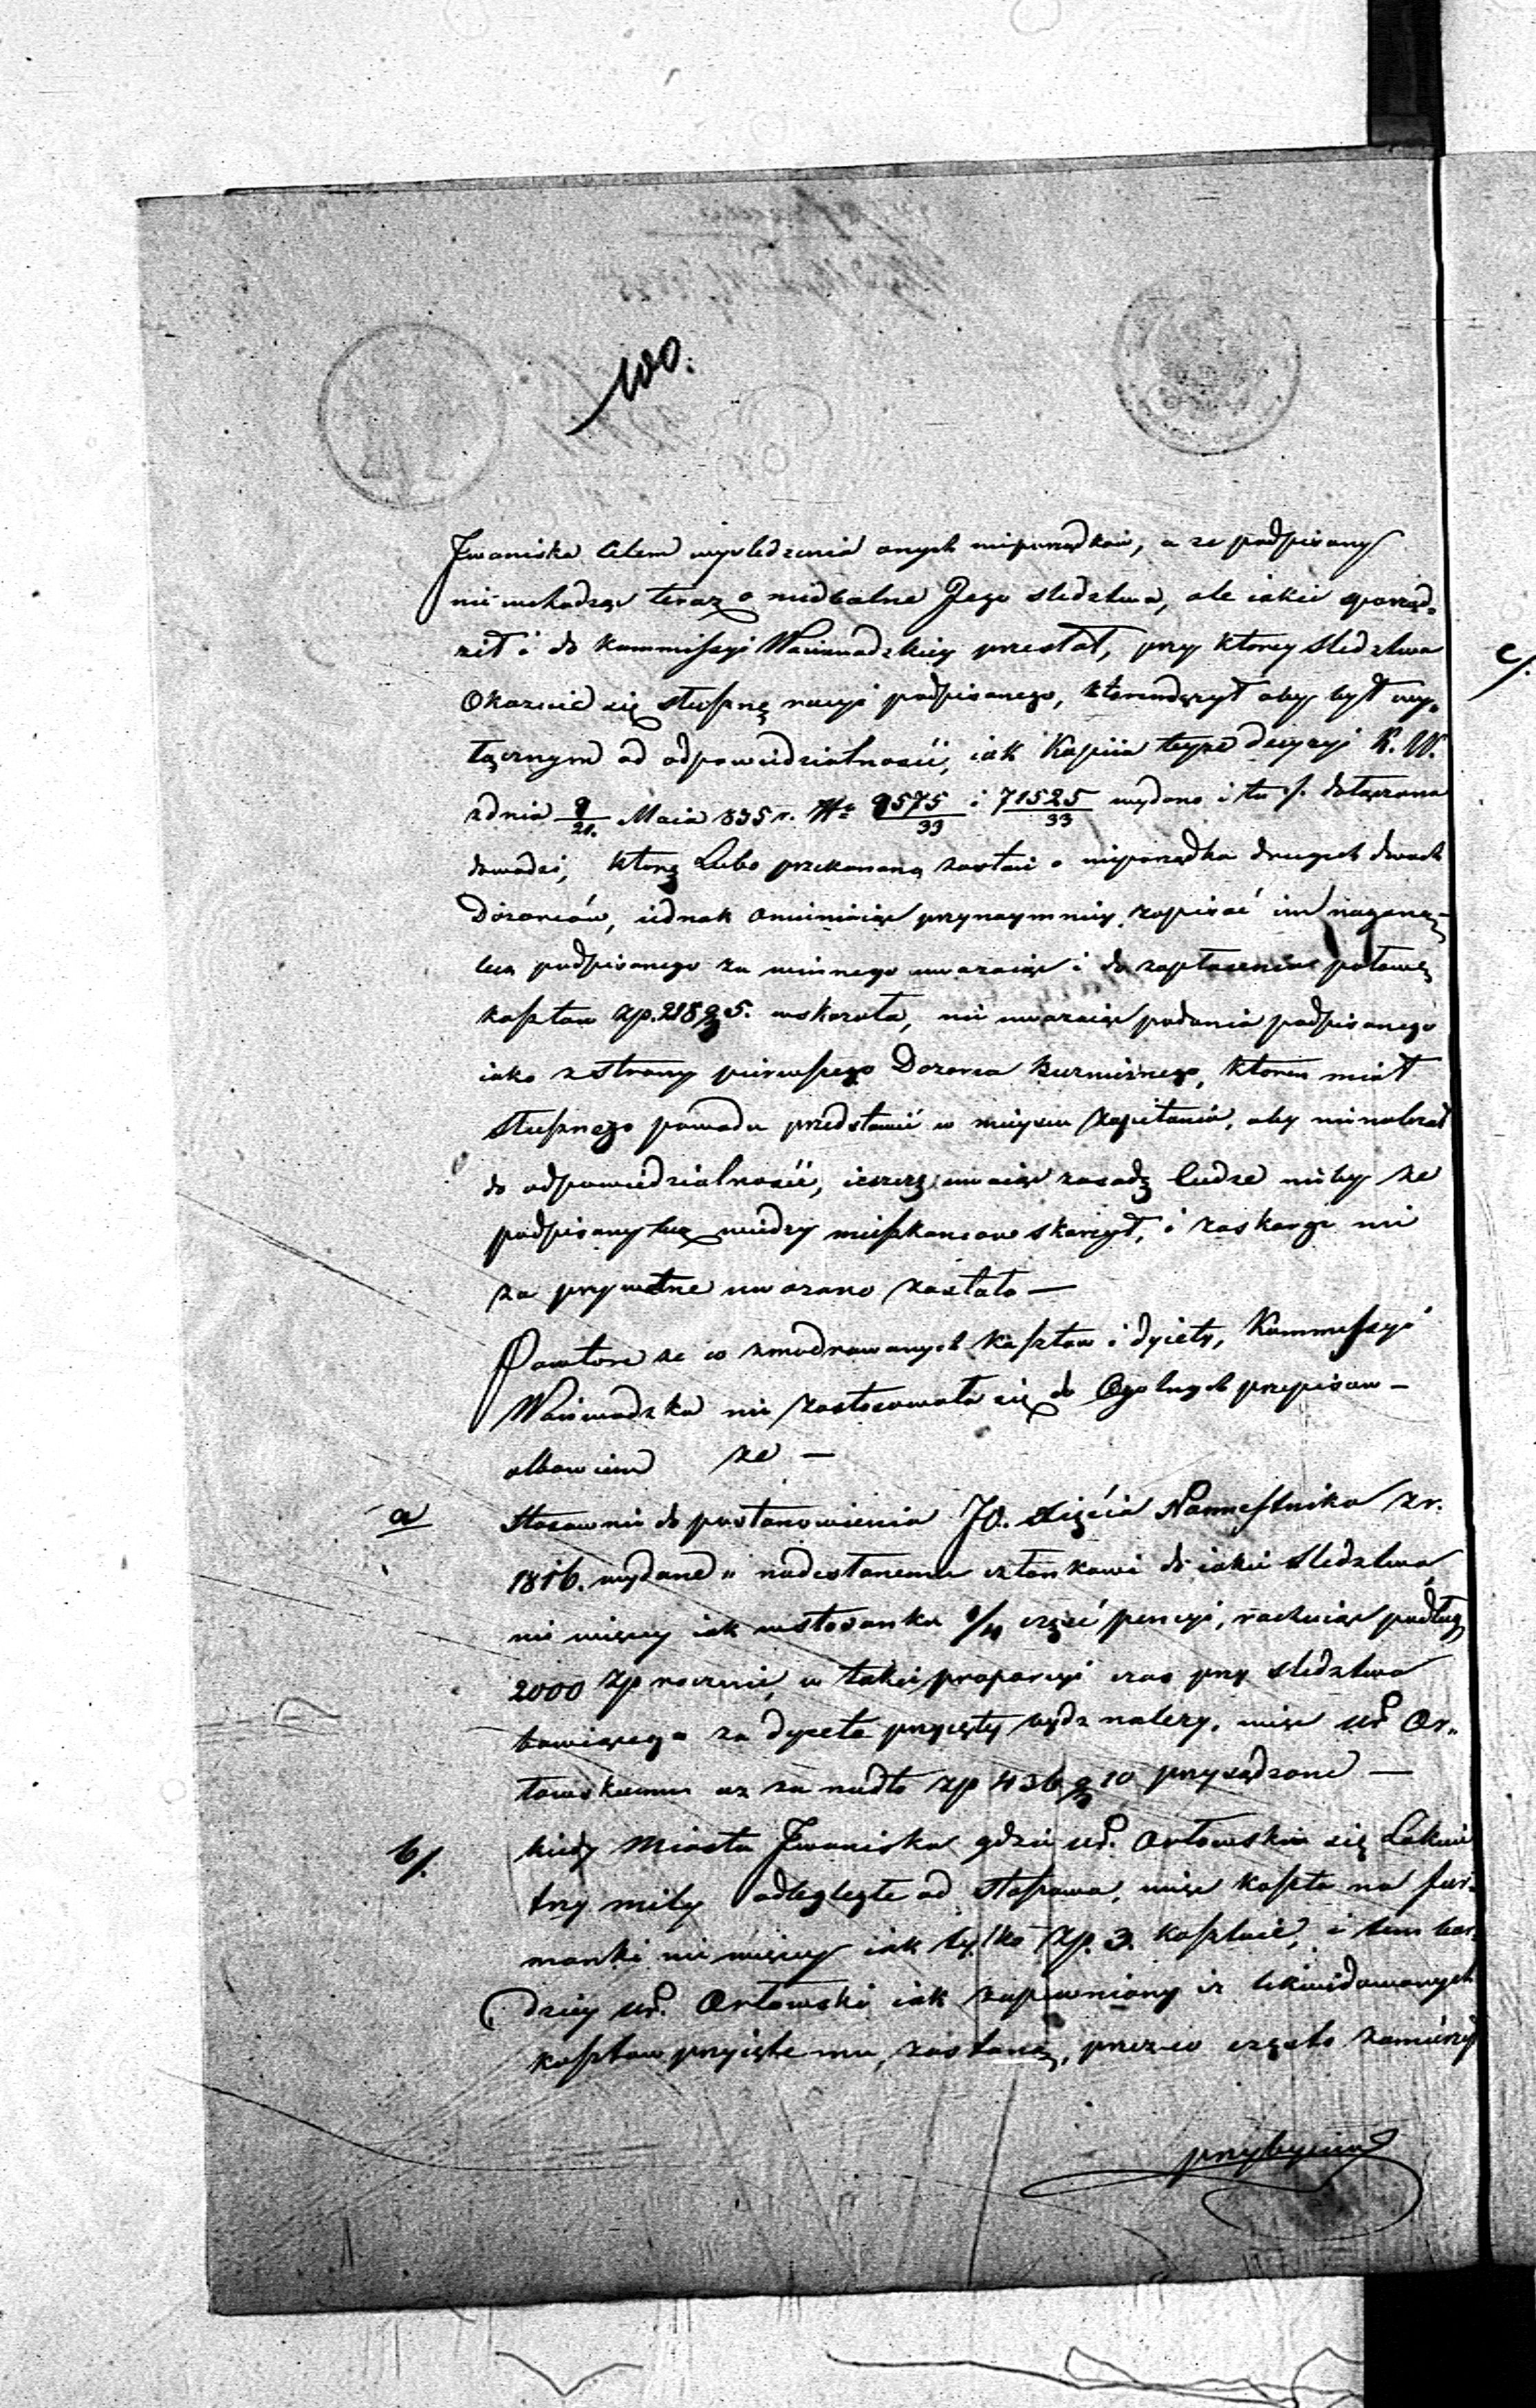 100.
Iwaniska celem wysledzenia onych nieporządków, a ze podpisany
nie wchodząc teraz o niedbalne Jego sledztwa, ale iakie sporząd-
ził i do Kommissyi Woiewodzkiey przesłał, przy ktorey sledztwa
okazuie się słuszne racye podpisanego, aby był wy-
łącznym od odpowiedzialności, iak Kopiia teyże decyzyi K. W.
z dnia 9/21. Maia 835 r. No 9575/33 i 71525/33 wydana i tu /. dołączona
dowodzi, która Lubo przekonaną zostaie o nieporządku drugich dwoch
Dozorców, iednak ominiaiąc przynaymniey zapisać im naganę
lecz podpisanego za winnego uwazaiąc i do zapłacenia połowę
kosztow zp. 218 g 5. wskazała, nie uwazaiąc podania podpisanego
iako z strony pierwszego Dozorca Bużniczego, ktoren miał
słusznego powodu przedstawić w mieyscu zapitania, aby nie nalezał
do odpowiedzialności, ieszcze maiąc zasadę ludze niby ze
podpisany lecz miedzy mieszkancow skarzył, i zaskargi nie
za prywatne uwazano zostało —
Powtore ze w zmodrowanych kosztow i dyiety, Kommissyi
Woiewodzka nie zastosowała się do Ogolnych przepisow —
albowiem ze —
a Stosownie do postanowienia JO. Xięcia Namiestnika z r.
1816. wydane " nadesłanemu członkowi do iakie sledztwa
nie więcey iak w stosunku 1/4 część pencyi, rachuiąc podług
2000 zp rocznie, w takie proporcyi czas przy sledztwa
bawiącego za dyeta przyięty bydz nalezy, więc Ur. Or-
łowskiemu az za nadto zp 436 g 10 przysądzone —
b/. kiedy Miasta Iwaniska gdzie Ur. Orłowskie się
trzy mily odlegległe od Stopnica, więc koszta na fur-
manki nie więcey iak tylko zp. 3. kosztuie, i tem bar-
dziey Ur. Orłowski iak zapewniony iz likwidowanych
kosztow przyięte mu zostaną, przez co często zamierzył
przybycia
c/.